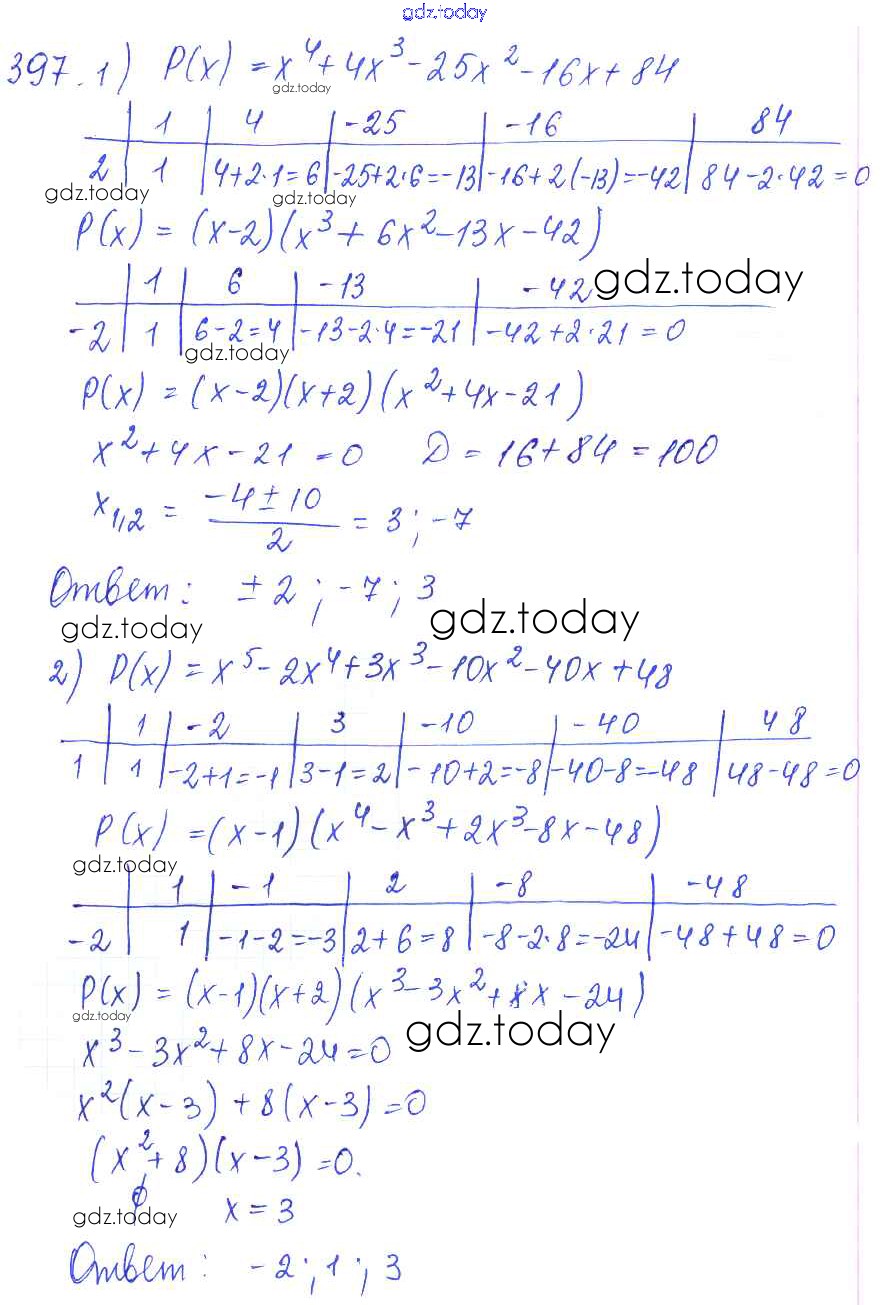 gdz.today
397. 1) P(x) = x⁴ + 4x³ - 25x² - 16x + 84
gdz.today
1 | 4 | -25 | -16 | 84
2 | 1 | 4+2·1=6 | -25+2·6=-13 | -16+2(-13)=-42 | 84-2·42=0
gdz.today gdz.today
P(x) = (x-2)(x³ + 6x² - 13x - 42)
1 | 6 | -13 | -42 gdz.today
-2 | 1 | 6-2=4 | -13-2·4=-21 | -42+2·21=0
gdz.today
P(x) = (x-2)(x+2)(x² + 4x - 21)
x² + 4x - 21 = 0 D = 16 + 84 = 100
x₁,₂ = (-4 ± 10)/2 = 3; -7
Ответ: ±2; -7; 3
gdz.today gdz.today
2) P(x) = x⁵ - 2x⁴ + 3x³ - 10x² - 40x + 48
1 | -2 | 3 | -10 | -40 | 48
1 | 1 | -2+1=-1 | 3-1=2 | -10+2=-8 | -40-8=-48 | 48-48=0
P(x) = (x-1)(x⁴ - x³ + 2x³ - 8x - 48)
gdz.today
1 | -1 | 2 | -8 | -48
-2 | 1 | -1-2=-3 | 2+6=8 | -8-2·8=-24 | -48+48=0
P(x) = (x-1)(x+2)(x³ - 3x² + 8x - 24)
gdz.today gdz.today
x³ - 3x² + 8x - 24 = 0
x²(x-3) + 8(x-3) = 0
(x² + 8)(x-3) = 0.
∅ x = 3
gdz.today
Ответ: -2; 1; 3